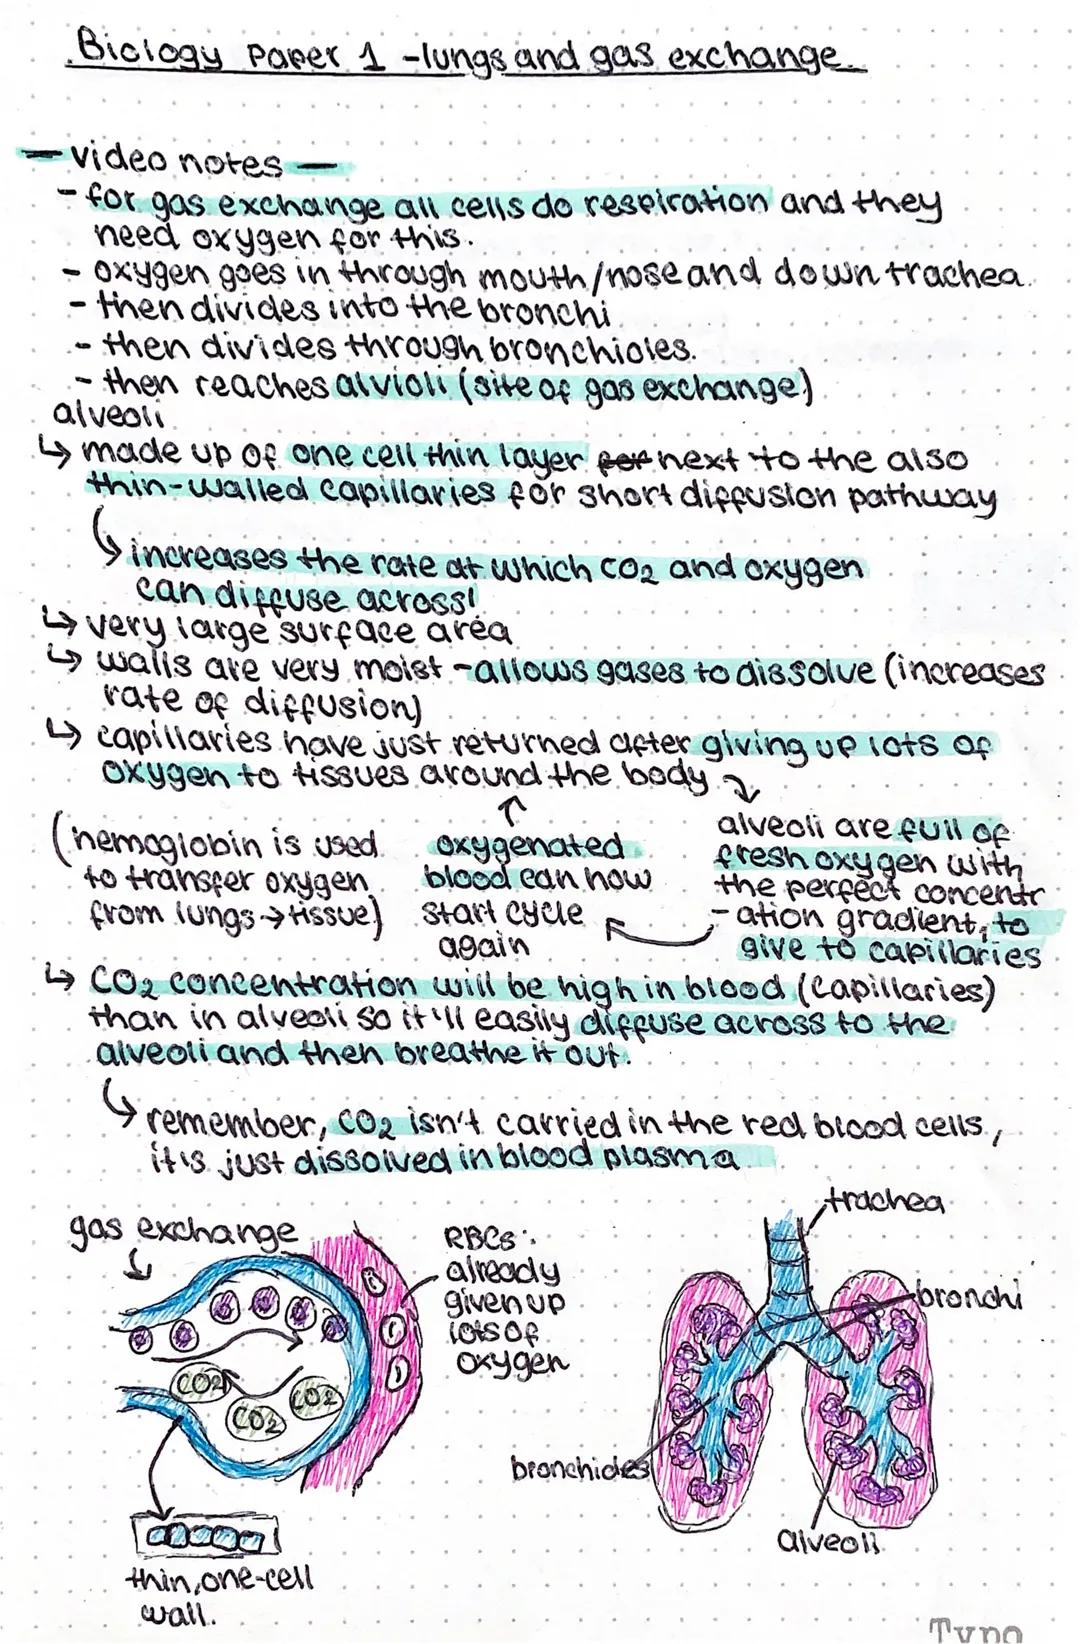 Biology Paper 1 -lungs and gas exchange.
- video notes -
- for gas exchange all cells do respiration and they
need oxygen for this.
- oxygen goes in through mouth/nose and down trachea.
- then divides into the bronchi
- then divides through bronchioles.
- then reaches alvioli (site of gas exchange)
alveoli
↳ made up of one cell thin layer for next to the also
thin-walled capillaries for short diffusion pathway
↳ increases the rate at which CO₂ and oxygen
can diffuse across!
↳ very large surface area
↳ walls are very moist - allows gases to dissolve (increases
rate of diffusion)
↳ capillaries have just returned after giving up lots of
oxygen to tissues around the body
(hemoglobin is used
to transfer oxygen
from lungs → tissue)
oxygenated
blood can now
start cycle
again
alveoli are full of
fresh oxygen with
the perfect concentr
-ation gradient, to
give to capillaries
↳ CO₂ concentration will be high in blood (capillaries)
than in alveoli so it'll easily diffuse across to the
alveoli and then breathe it out.
↳ remember, CO₂ isn't carried in the red blood cells,
it's just dissolved in blood plasma
gas exchange
CO2
CO2
CO2
thin, one-cell
wall.
RBCs:
already
given up
lots of
oxygen
trachea
bronchi
bronchioles
alveoli
Typo